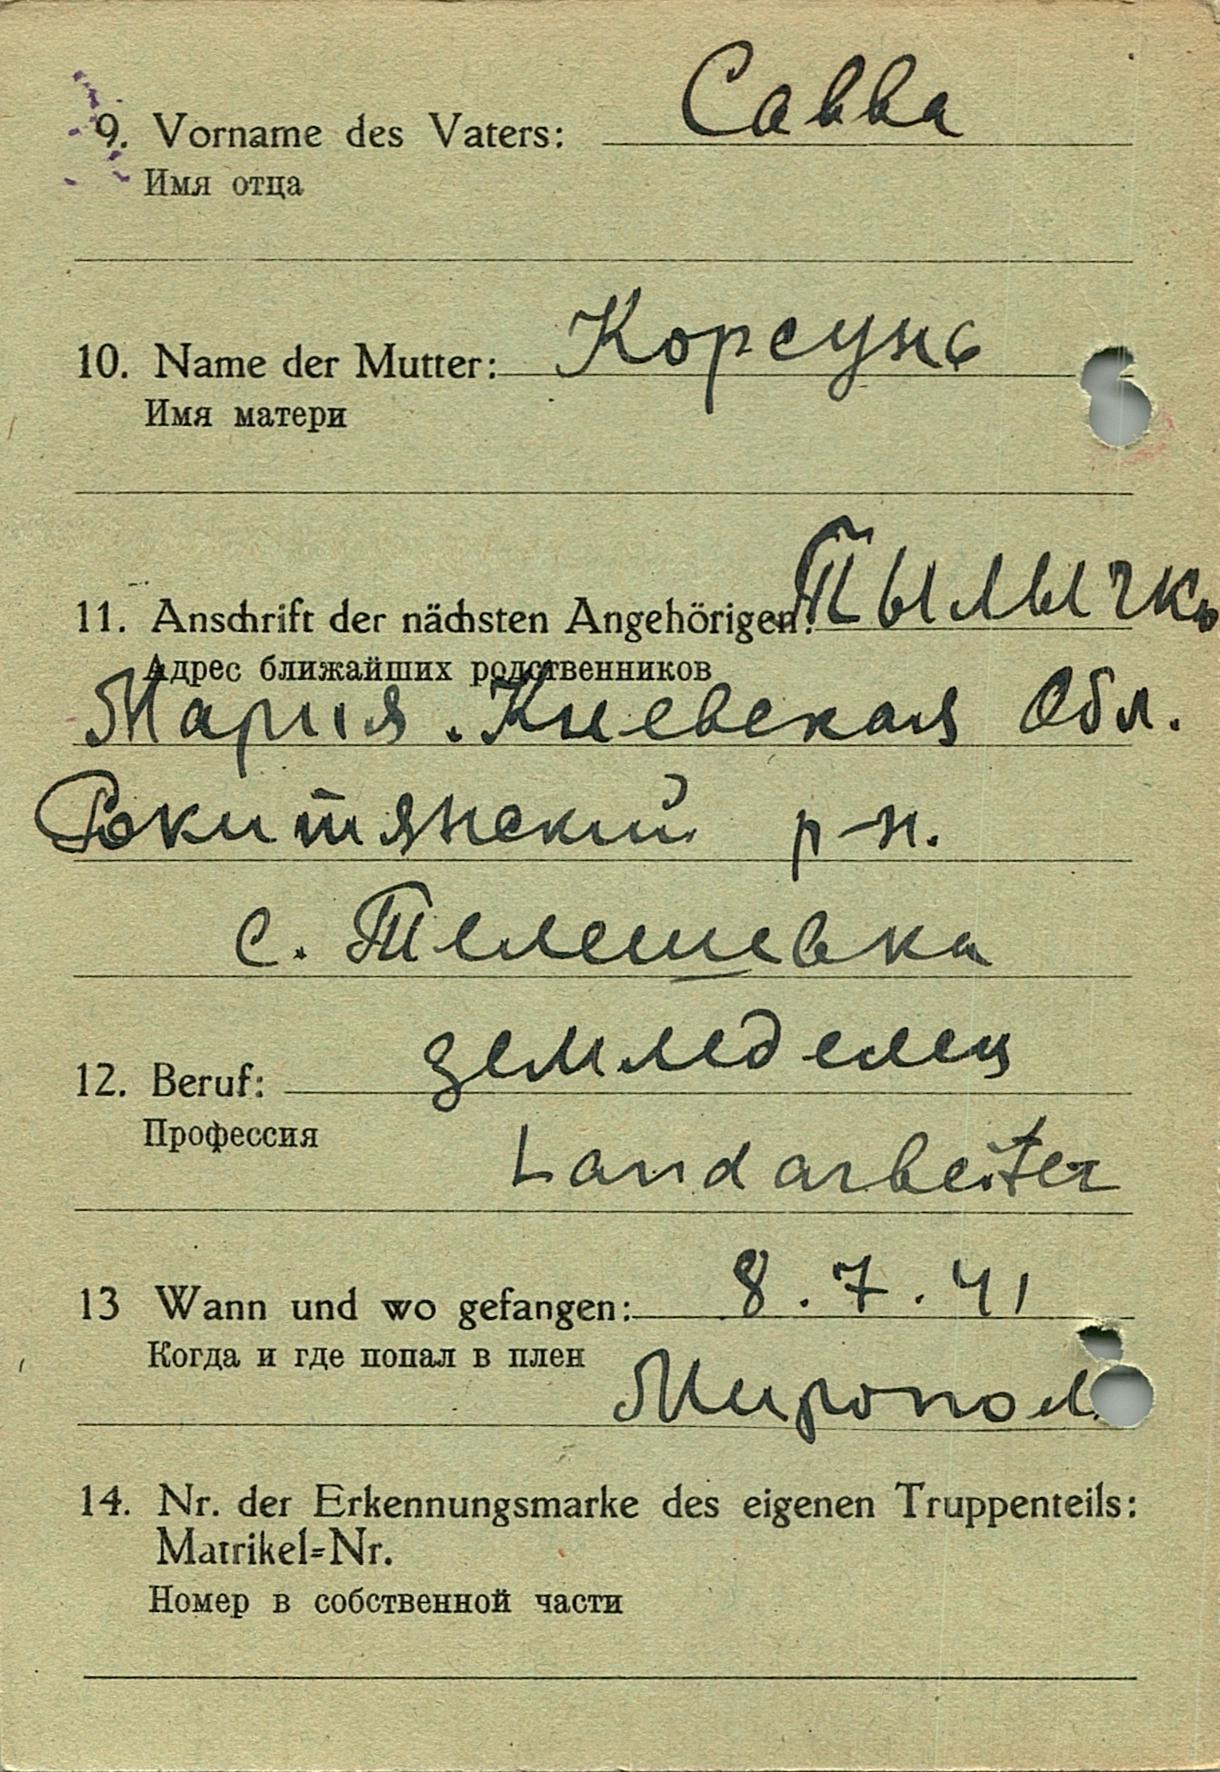 9. Vorname des Vaters: Савва
Имя отца
10. Name der Mutter: Корсунь
Имя матери
11. Anschrift der nächsten Angehörigen: Тылычко
Адрес ближайших родственников
Мария. Киевская Обл.
Рокитянский р-н.
с. Телешевка
12. Beruf: земледелец
Профессия
Landarbeiter
13 Wann und wo gefangen: 8.7.41
Когда и где попал в плен
Мирополь
14. Nr. der Erkennungsmarke des eigenen Truppenteils:
Matrikel=Nr.
Номер в собственной части